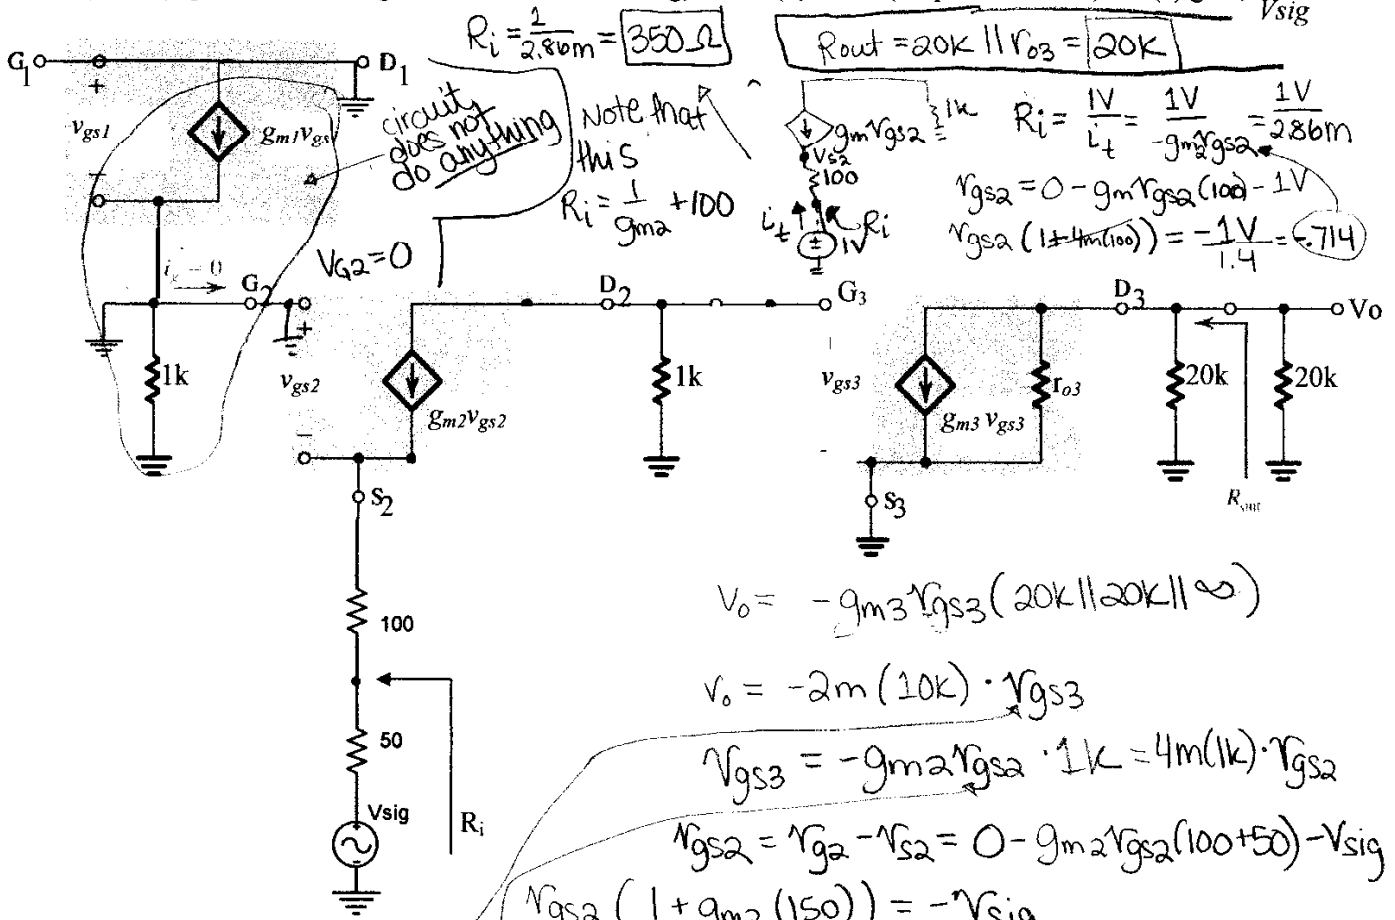 Vsig
Ri = 1/2.86m = 350Ω
Rout = 20K || ro3 = 20K
G1
D1
+
vgs1
gm1vgs
-
circuit does not do anything
Note that this
Ri = 1/gm2 + 100
gmvgs2
1k
Vs2
100
it
Ri
1V
Ri = 1V/it = 1V/-gm2vgs2 = 1V/2.86m
vgs2 = 0 - gmvgs2(100) - 1V
vgs2 (1+4m(100)) = -1V/1.4 = -.714
VG2 = 0
= 0
G2
+
1k
vgs2
-
gm2vgs2
D2
1k
G3
vgs3
gm3 vgs3
ro3
D3
20k
20k
Vo
Rout
S2
S3
100
50
Vsig
Ri
Vo = -gm3vgs3(20k||20k||∞)
vo = -2m(10K) · vgs3
vgs3 = -gm2vgs2 · 1K = 4m(1k) · vgs2
vgs2 = vg2 - vs2 = 0 - gm2vgs2(100+50) - Vsig
vgs2 (1 + gm2 (150)) = -Vsig